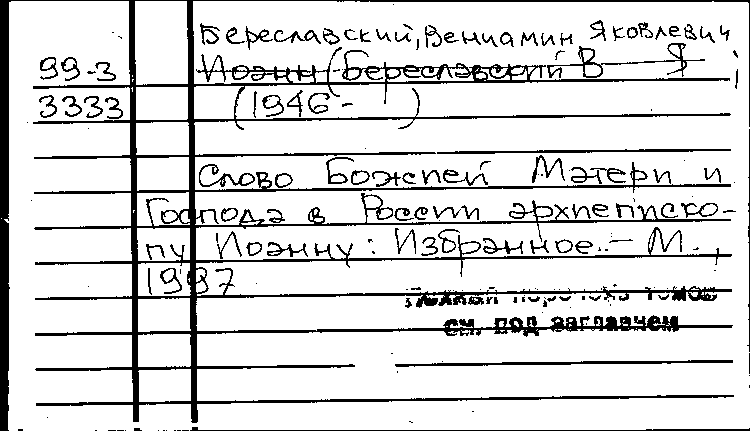 Береславский, Вениамин Яковлевич
99-3 Иоэнн (Береславский В Я ;
3333 (1946- )
Слово Божией Мэтери и
Господэ в России эрхиеписко-
пу Иоэнну: Избрэнное. - М.,
1997
Полный перечень томов
см. под заглавием